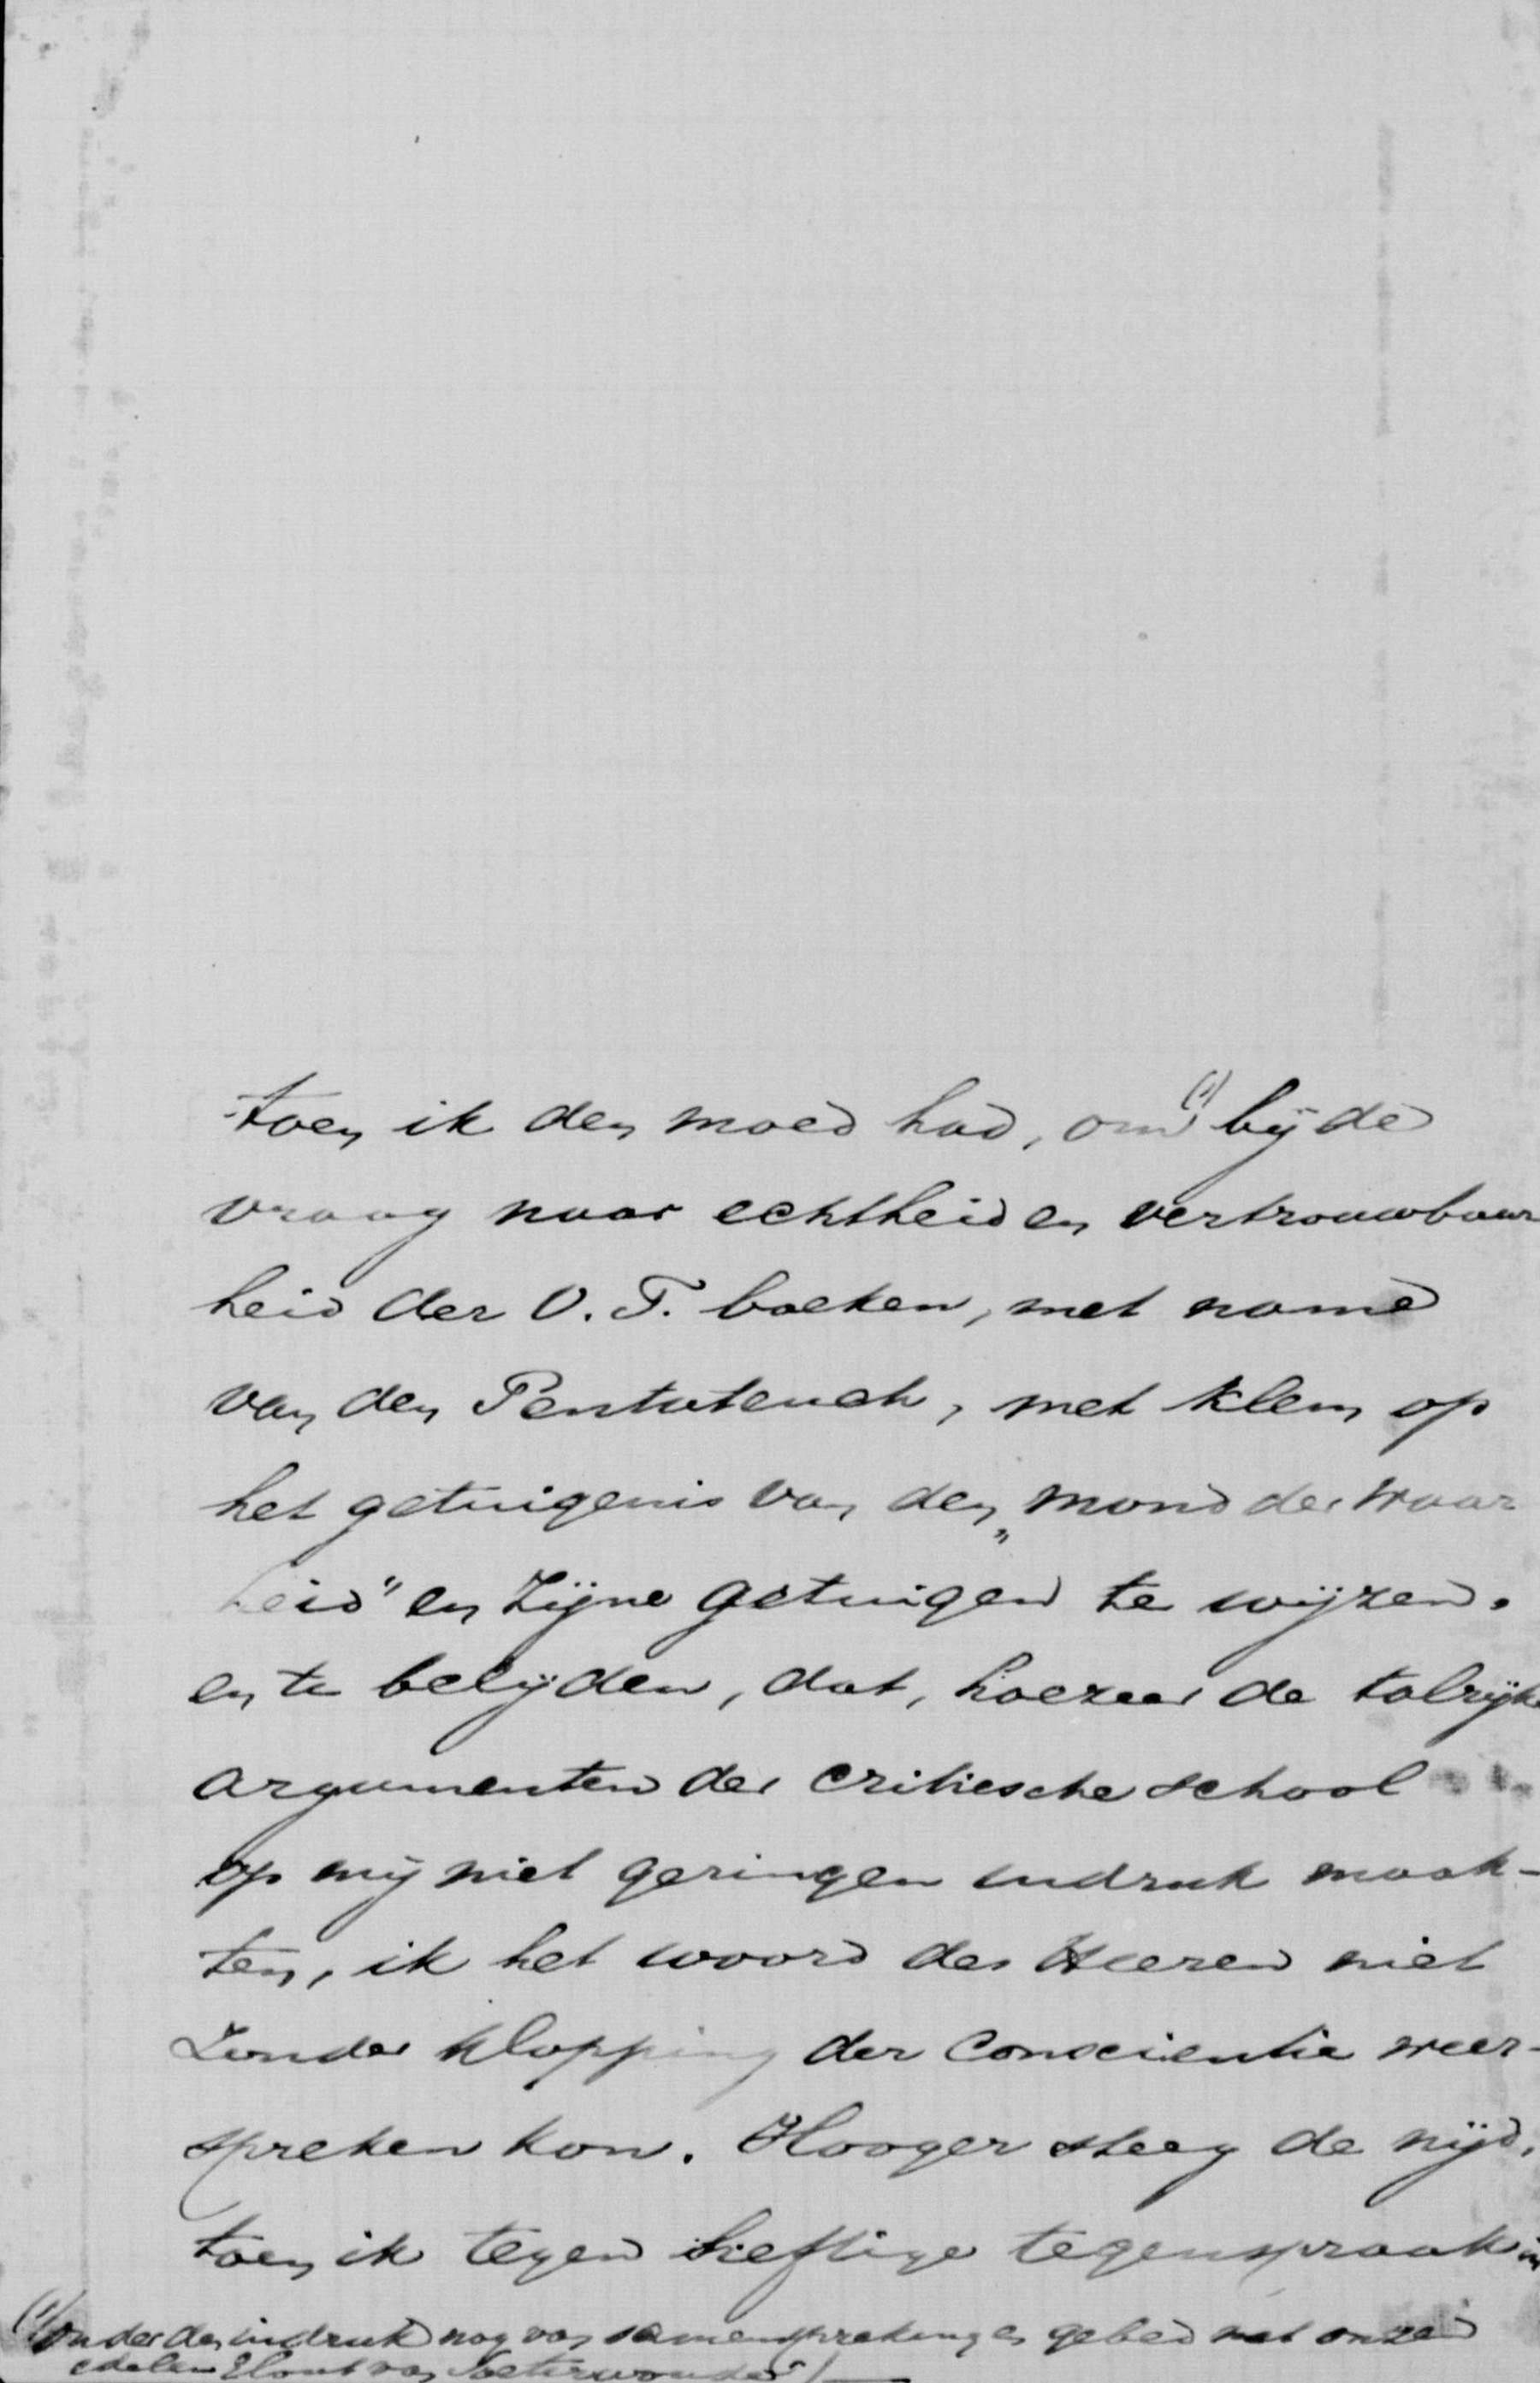 toen ik den moed had, om (1) bij de
vraag naar echtheid en vertrouwbaar
heid der O. T. boeken, met name
van den Pentateuch, met klem op
het getuigenis van den „mond der waar
heid" en Zijne getuigen te wijzen.
en te belijden, dat, hoezeer de talrijke
argumenten der critiesche school
op mij niet geringen indruk maak-
ten, ik het woord des Heeren niet
zonder klopping der conscientie weer-
spreken kon. Hooger steeg de nijd,
toen ik tegen heftige tegenspraak in
(1) onder den indruk nog van samenspreking en gebed met onzen
edelen Elout van Soeterwoude)